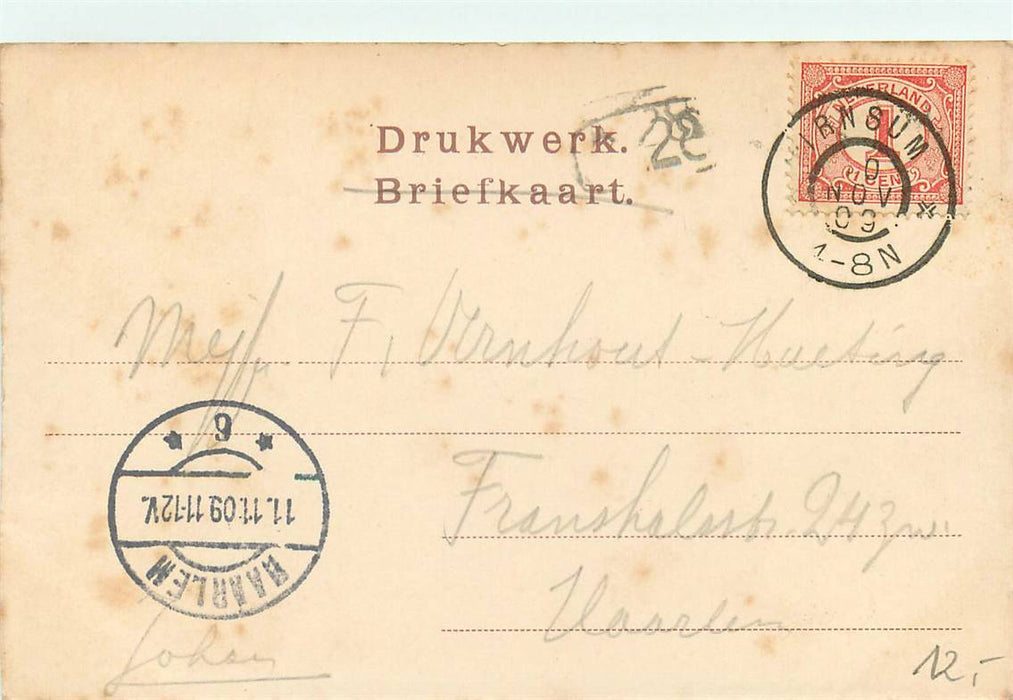 Drukwerk.
Briefkaart.
NEDERLAND
1
1 CENT
IRNSUM
NOV
09
-8N
Mejf. F. Vernhout-Hueting
Franshalsstr. 24
Haarlem
6
11.11:09.11-12V.
HAARLEM
Johan
12,-